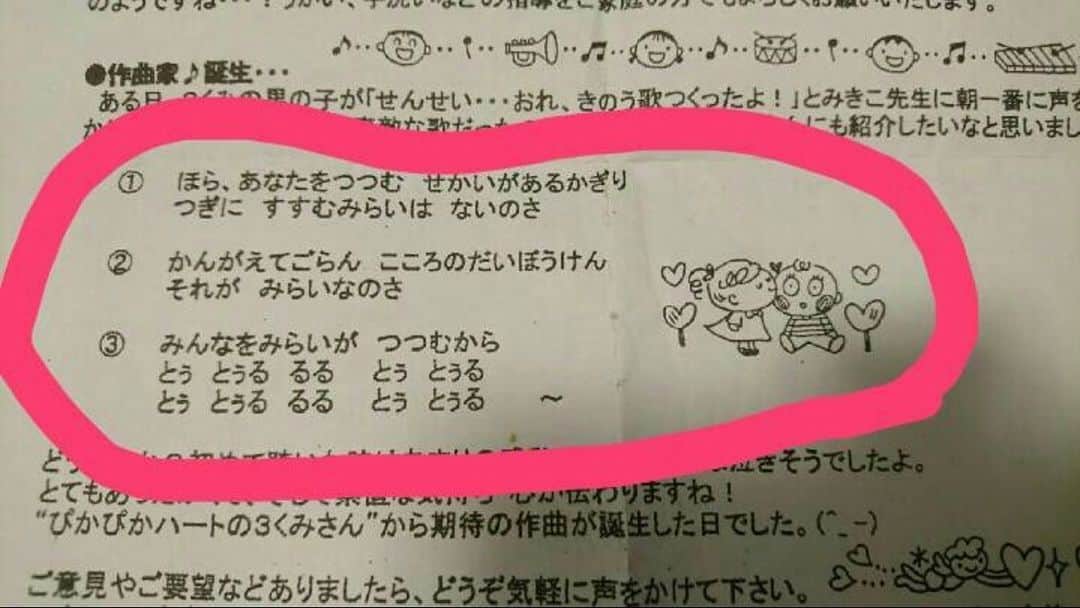 ●作曲家♪誕生・・・
ある日、3くみの男の子が「せんせい・・・おれ、きのう歌つくったよ！」とみきこ先生に朝一番に声を
にも紹介したいなと思いまし
① ほら、あなたをつつむ せかいがあるかぎり
つぎに すすむみらいは ないのさ
② かんがえてごらん こころのだいぼうけん
それが みらいなのさ
③ みんなをみらいが つつむから
とぅ とぅる るる とぅ とぅる
とぅ とぅる るる とぅ とぅる ～
泣きそうでしたよ。
とてもあ 心が伝わりますね！
“ぴかぴかハートの3くみさん”から期待の作曲が誕生した日でした。(^_-)
ご意見やご要望などありましたら、どうぞ気軽に声をかけて下さい。